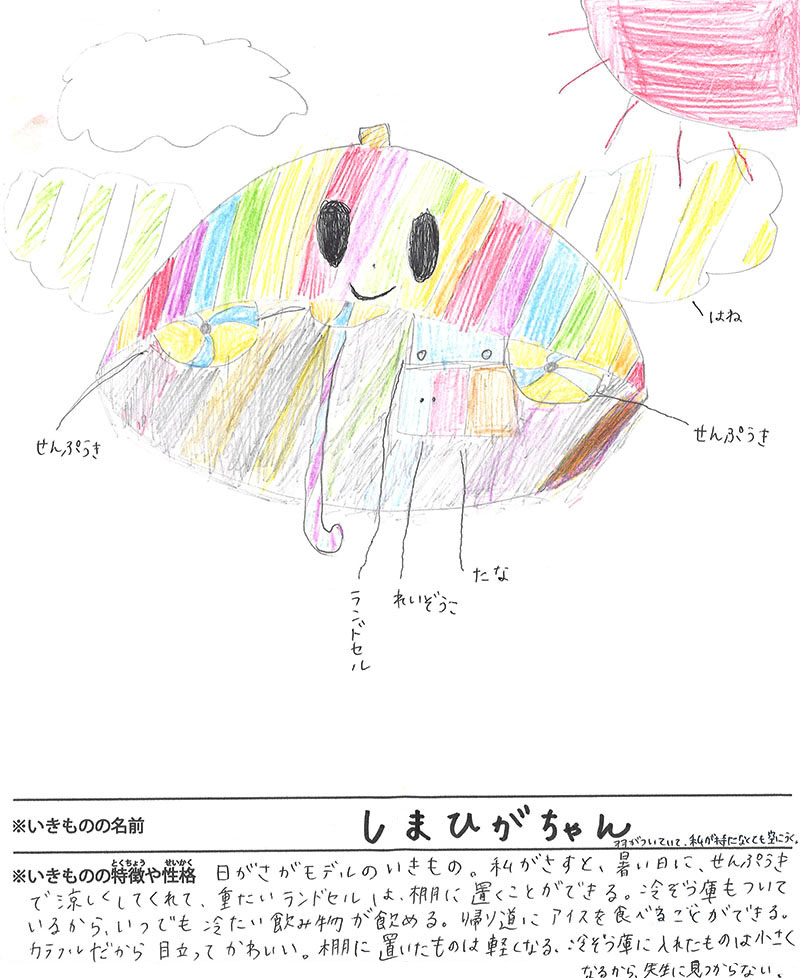 はね
せんぷうき
せんぷうき
たな
れいぞうこ
ランドセル
※いきものの名前
しまひがちゃん
羽がついていて、私が持たなくても空にうく。
※いきものの特徴や性格
とくちょう
せいかく
日がさがモデルのいきもの。私がさすと、暑い日に、せんぷうき
で涼しくしてくれて、重たいランドセルは、棚に置くことができる。冷ぞう庫もついて
いるから、いつでも冷たい飲み物が飲める。帰り道にアイスを食べることができる。
カラフルだから目立ってかわいい。棚に置いたものは軽くなる、冷ぞう庫に入れたものは小さく
なるから、先生に見つからない。